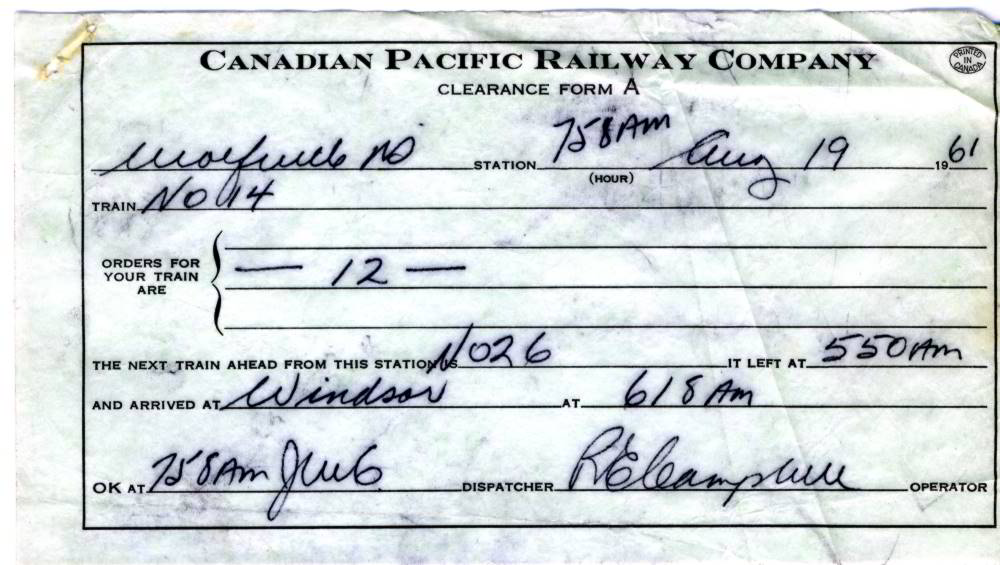 CANADIAN PACIFIC RAILWAY COMPANY
PRINTED IN CANADA
CLEARANCE FORM A
NS STATION 758AM (HOUR) Aug 19 1961
TRAIN No 14
ORDERS FOR YOUR TRAIN ARE — 12 —
THE NEXT TRAIN AHEAD FROM THIS STATION IS No 26 IT LEFT AT 550AM
AND ARRIVED AT Windsor AT 618AM
OK AT 758AM DISPATCHER RECampbell OPERATOR